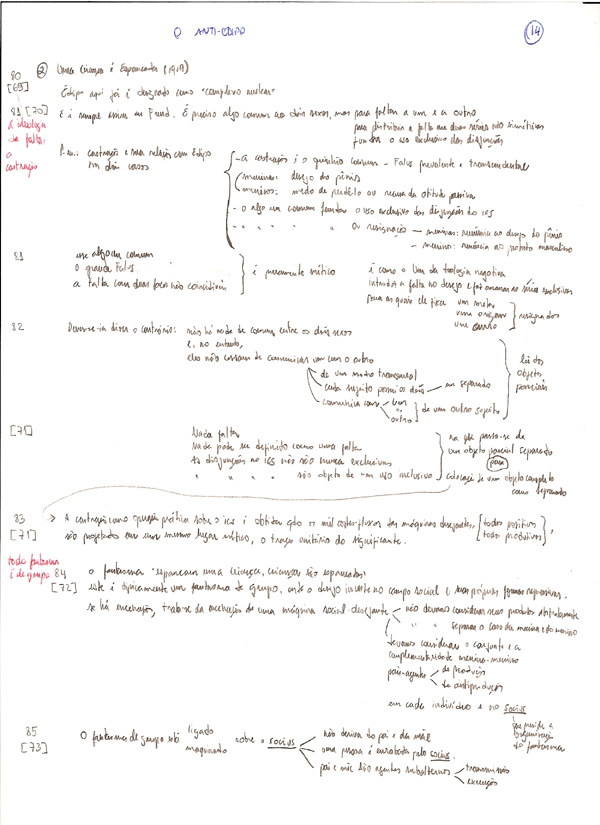 O ANTI-ÉDIPO
14
80
[69]
② Uma criança é espancada (1919)
Édipo aqui já é designado como "complexo nuclear"
81 [70]
E é sempre assim em Freud. É preciso algo comum aos dois sexos, mas para faltar a um e a outro
para distribuir a falta em duas séries não simétricas
fundar o uso exclusivo das disjunções
a ideologia
da falta:
a
castração
P. ex.: castração e sua relação com Édipo
nos dois casos
- a castração é o quinhão comum - Falus prevalente e transcendental
meninas: desejo do pênis
meninos: medo de perdê-lo ou recusa da atitude passiva
- o algo em comum fundar o uso exclusivo das disjunções do ics
- " " " " ou resignação
meninas: renúncia ao desejo do pênis
menino: renúncia ao protesto masculino
81
esse algo em comum
o grande Falus
a falta com duas faces não coincidíveis
é puramente mítico
é como o Um da teologia negativa
introduz a falta no desejo e faz emanar as séries exclusivas
para as quais ele fixa
uma meta
uma origem
um caminho
resignados
82
Dever-se-ia dizer o contrário:
não há nada de comum entre os dois sexos
e, no entanto,
eles não cessam de comunicar um com o outro
de um modo transversal
cada sujeito possui os dois
separado
comunica com
um
outro
de um outro sujeito
lei dos
objetos
parciais
[71]
Nada falta
Nada pode ser definido como uma falta
As disjunções no ics não são nunca exclusivas
" " " são objeto de um uso inclusivo
na passa-se de
um objeto parcial separado
para
colocação de um objeto completo
como separado
83
[71]
→ A castração como operação prática sobre o ics é obtida qdo os mil cortes-fluxos das máquinas desejantes,
todos positivos
todos produtivos
são projetados em um mesmo lugar mítico, o traço unitário do significante.
todo fantasma
é de grupo
84
[72]
o fantasma "espancam uma criança, crianças são espancadas"
este é tipicamente um fantasma de grupo, onde o desejo investe no campo social e suas próprias formas repressivas.
se há encenação, trata-se da encenação de uma máquina social-desejante
não devemos considerar seus produtos abstratamente
" " separar o caso da menina e do menino
devemos considerar o conjunto e a
complementaridade menino-menina
pais-agentes
de produção
de antiprodução
em cada indivíduo e no socius
que preside a
organização
do fantasma
85
[73]
O fantasma de grupo está
ligado
maquinado
sobre o socius
não deriva do pai e da mãe
uma pessoa é enrabada pelo socius.
pai e mãe são agentes subalternos
transmissão
execução